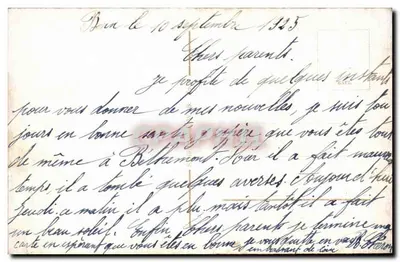 le 10 septembre 1925
Chers parents.
je profite de quelques instants
pour vous donner de mes nouvelles, je suis tou
jours en bonne santé j'espère que vous êtes tous
de même à Hier il a fait mauvais
temps, il a tombé quelques averses. Aujourd'hui
Jeudi, ce matin il a plu mais tantôt il a fait
un beau soleil. Enfin Chers parents je termine ma
carte en espérant que vous êtes en bonne je vous quitte en vous
embrassant de loin